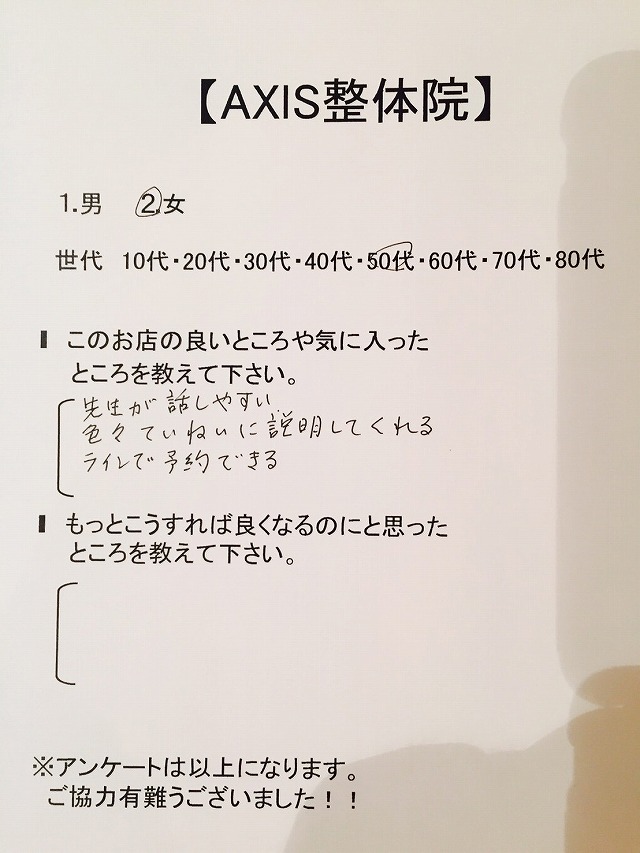 【AXIS整体院】
1.男 2.女
世代 10代・20代・30代・40代・50代・60代・70代・80代
このお店の良いところや気に入った
ところを教えて下さい。
先生が話しやすい
色々ていねいに説明してくれる
ラインで予約できる
もっとこうすれば良くなるのにと思った
ところを教えて下さい。
※アンケートは以上になります。
ご協力有難うございました！！